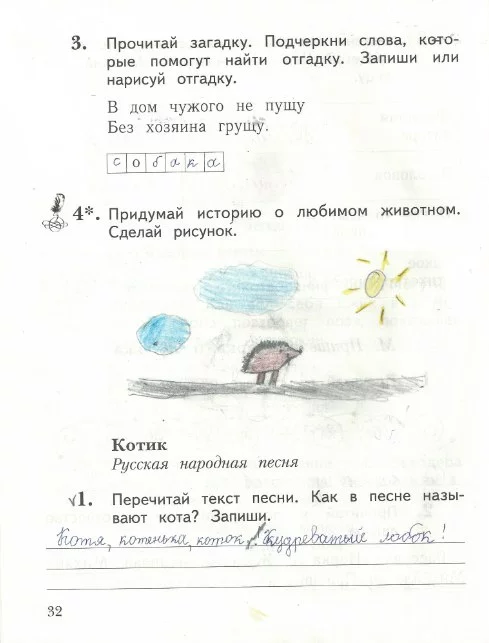 3. Прочитай загадку. Подчеркни слова, кото-
рые помогут найти отгадку. Запиши или
нарисуй отгадку.
В дом чужого не пущу
Без хозяина грущу.
собака
4*. Придумай историю о любимом животном.
Сделай рисунок.
Котик
Русская народная песня
√1. Перечитай текст песни. Как в песне назы-
вают кота? Запиши.
Котя, котенька, коток, Кудреватый лобок!
32